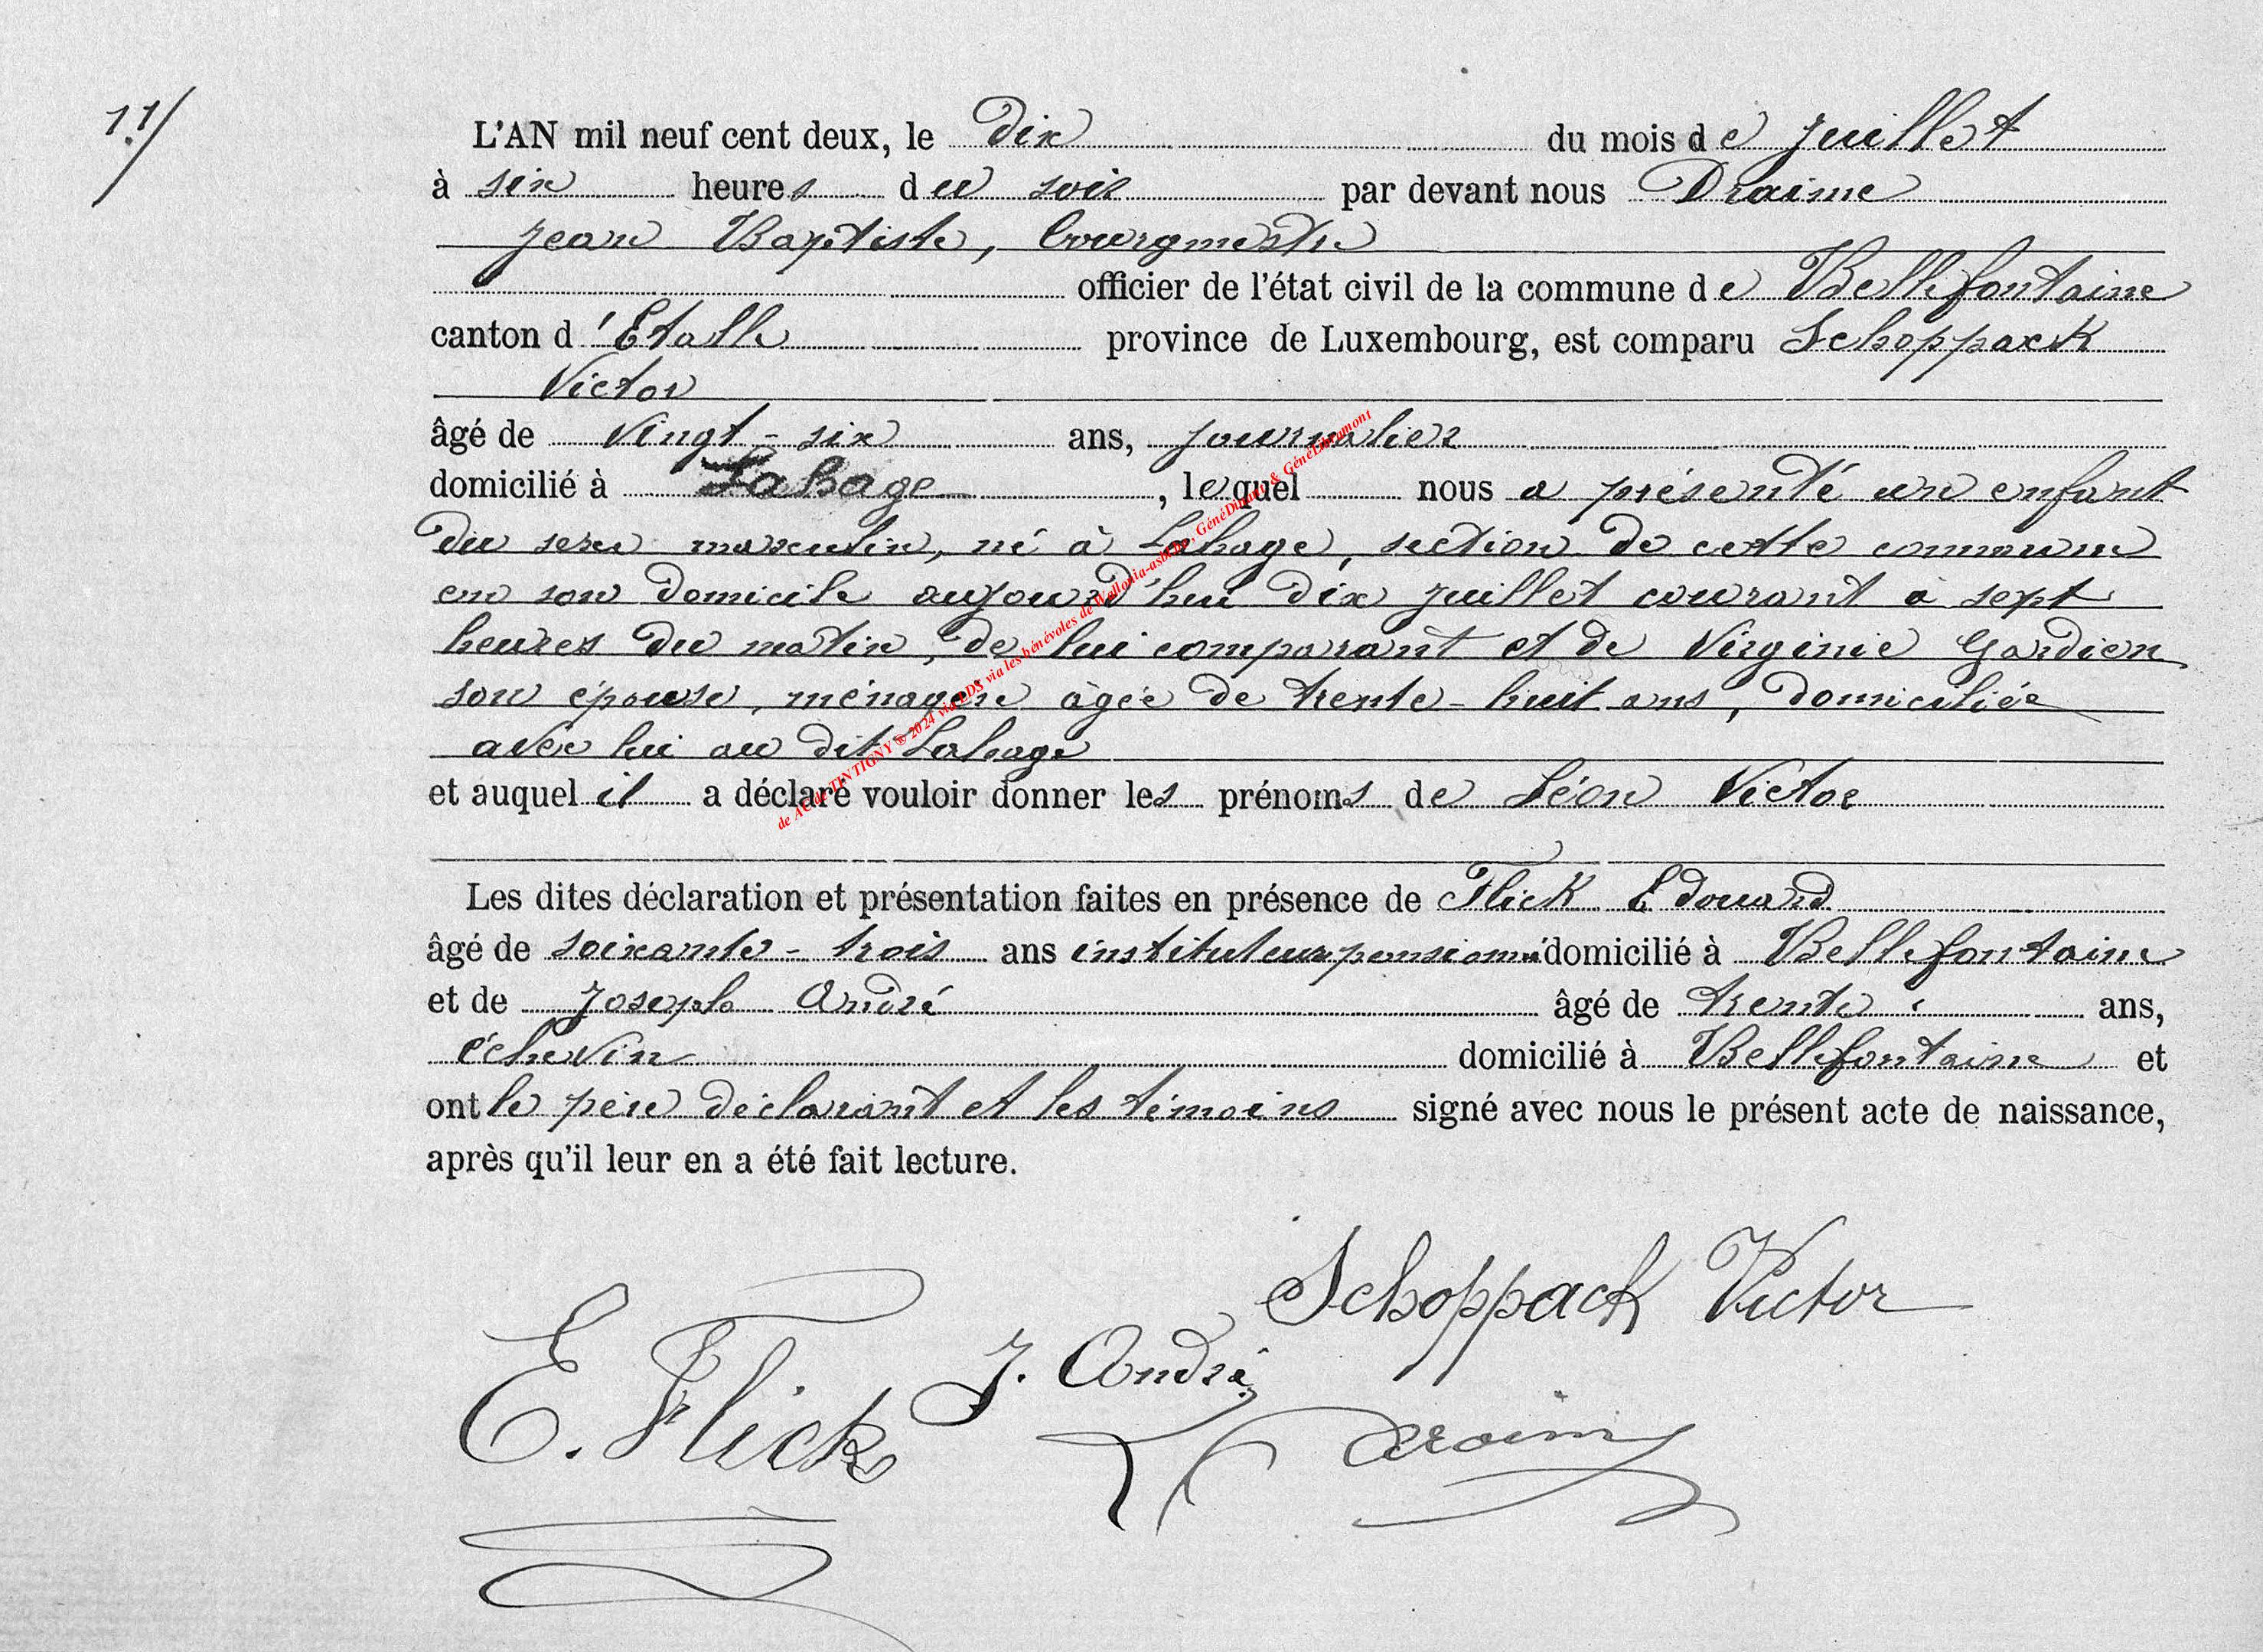 11/
L'AN mil neuf cent deux, le Dix du mois de Juillet
à six heures du soir par devant nous Draime
Jean Baptiste, bourgmestre
officier de l'état civil de la commune de Bellefontaine
canton d'Etalle province de Luxembourg, est comparu Schoppack
Victor
âgé de vingt-six ans, journalier
domicilié à Lahage, lequel nous a présenté un enfant
du sexe masculin, né à Lahage, section de cette commune
en son domicile aujourd'hui dix juillet courant à sept
heures du matin, de lui comparant et de Virginie Gardien
son épouse, ménagère âgée de trente-huit ans, domiciliée
avec lui au dit Lahage
et auquel il a déclaré vouloir donner les prénoms de Léon Victor
Les dites déclaration et présentation faites en présence de Flick Edouard
âgé de soixante-trois ans instituteur pensionné domicilié à Bellefontaine
et de Joseph André âgé de trente ans,
échevin domicilié à Bellefontaine et
ont le père déclarant et les témoins signé avec nous le présent acte de naissance,
après qu'il leur en a été fait lecture.
Schoppack Victor
E. Flick J. André
Draime
de AC de TINTIGNY ® 2024 via LDS via les bénévoles de Wallonia-asbl, GénéDinant & GénéLibramont